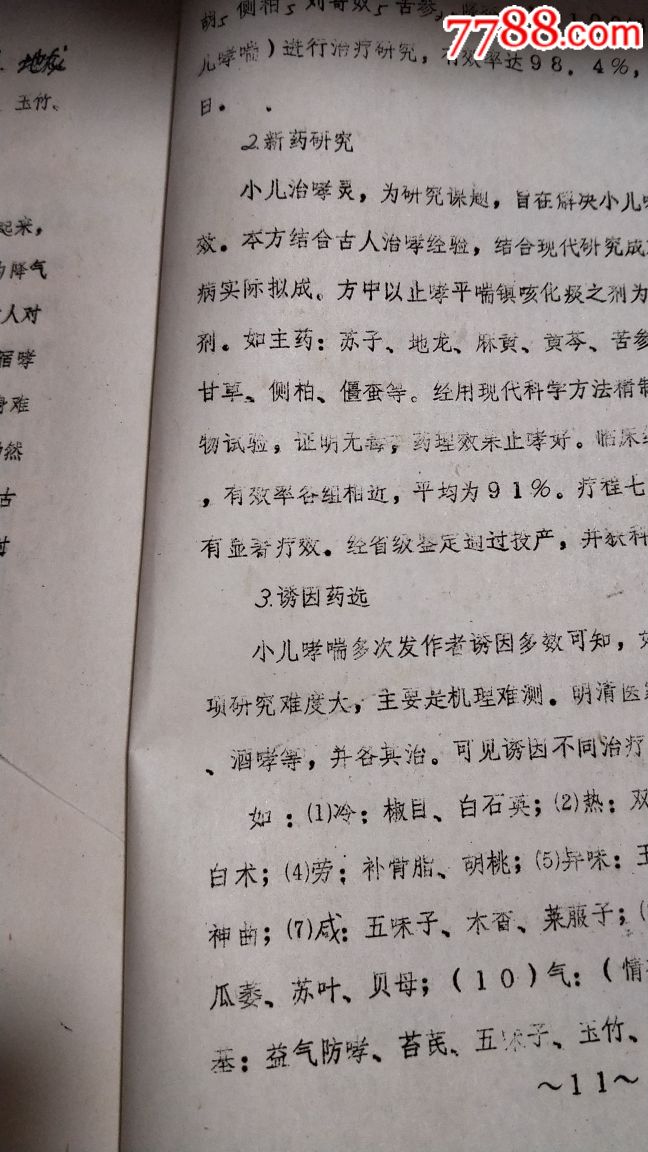 地龙
玉竹、
起来，
降气
人对
哮
难
然
古
胡5侧柏5刘寄奴5苦参
7788.com
儿哮喘）进行治疗研究，有效率达98．4％，
日。
2.新药研究
小儿治哮灵，为研究课题，旨在解决小儿
效。本方结合古人治哮经验，结合现代研究成
病实际拟成。方中以止哮平喘镇咳化痰之剂为
剂。如主药：苏子、地龙、麻黄、黄芩、苦参
甘草、侧柏、僵蚕等。经用现代科学方法精制
物试验，证明无毒，药理效果止哮好。临床
，有效率各组相近，平均为91％。疗程七
有显著疗效。经省级鉴定通过投产，并获科
3.诱因药选
小儿哮喘多次发作者诱因多数可知，
项研究难度大，主要是机理难测。明清医
、酒哮等，并各其治。可见诱因不同治疗
如：(1)冷：椒目、白石英；(2)热：双
白术；(4)劳：补骨脂、胡桃；(5)异味：
神曲；(7)咸：五味子、木香、莱服子；
瓜蒌、苏叶、贝母；(10)气：(情
基：益气防哮、苔芪、五味子、玉竹、
～11～